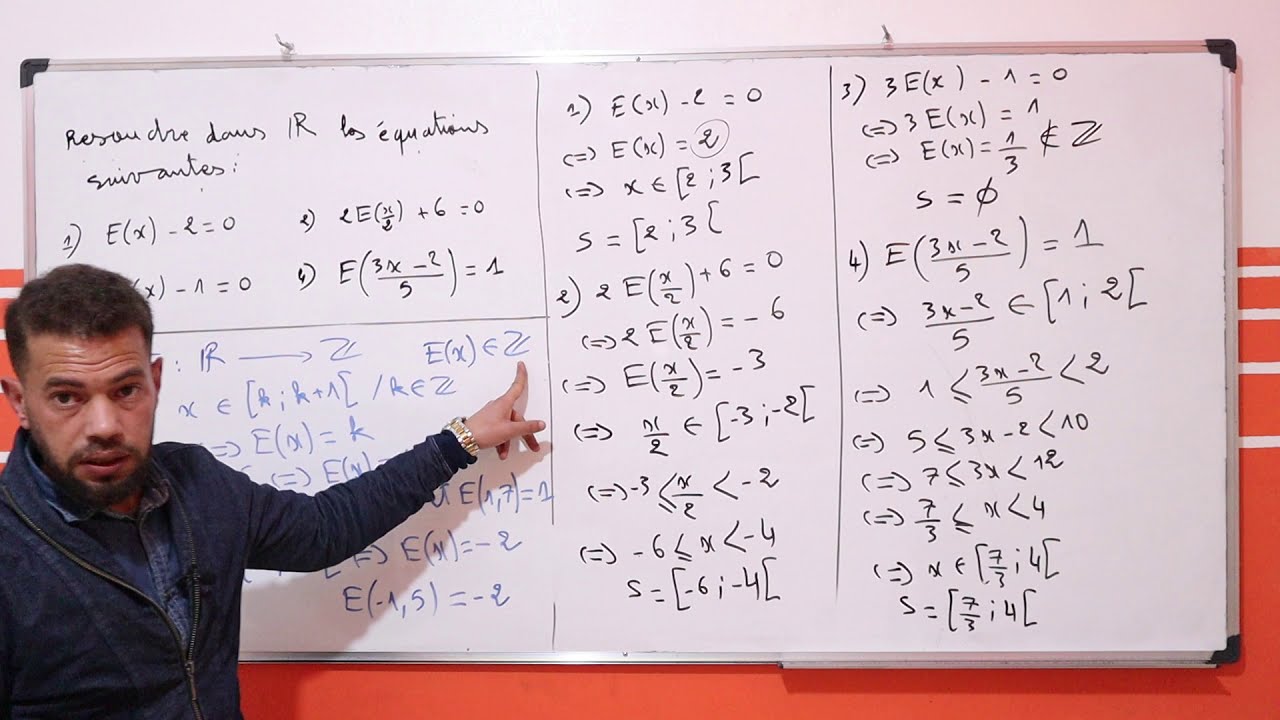 Resoudre dans ℝ les équations
suivantes :
1) E(x) - 2 = 0 2) 2E(x/2) + 6 = 0
(x) - 1 = 0 4) E((3x - 2)/5) = 1
: ℝ ⟶ ℤ E(x) ∈ ℤ
x ∈ [k ; k+1[ / k ∈ ℤ
⇒ E(x) = k
(=) E(x)
E(1,7) = 1
(=) E(x) = -2
E(-1,5) = -2
1) E(x) - 2 = 0
(=) E(x) = 2
(=) x ∈ [2 ; 3[
S = [2 ; 3[
2) 2E(x/2) + 6 = 0
(=) 2E(x/2) = -6
(=) E(x/2) = -3
(=) x/2 ∈ [-3 ; -2[
(=) -3 ≤ x/2 < -2
(=) -6 ≤ x < -4
S = [-6 ; -4[
3) 3E(x) - 1 = 0
(=) 3E(x) = 1
(=) E(x) = 1/3 ∉ ℤ
S = ∅
4) E((3x - 2)/5) = 1
(=) (3x - 2)/5 ∈ [1 ; 2[
(=) 1 ≤ (3x - 2)/5 < 2
(=) 5 ≤ 3x - 2 < 10
(=) 7 ≤ 3x < 12
(=) 7/3 ≤ x < 4
(=) x ∈ [7/3 ; 4[
S = [7/3 ; 4[